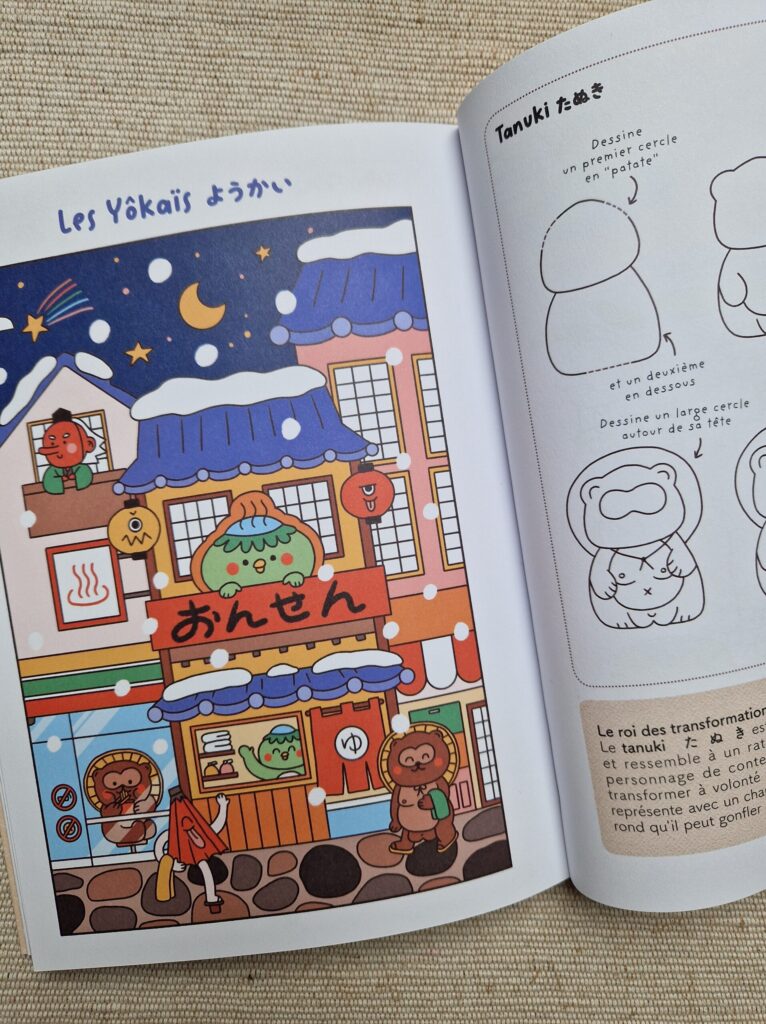 Les Yôkaïs ようかい
おんせん
ゆ
Tanuki たぬき
Dessine
un premier cercle
en "patate"
et un deuxième
en dessous
Dessine un large cercle
autour de sa tête
Le roi des transformation
Le tanuki たぬき es
et ressemble à un rat
personnage de conte
transformer à volonté
représente avec un cha
rond qu'il peut gonfler